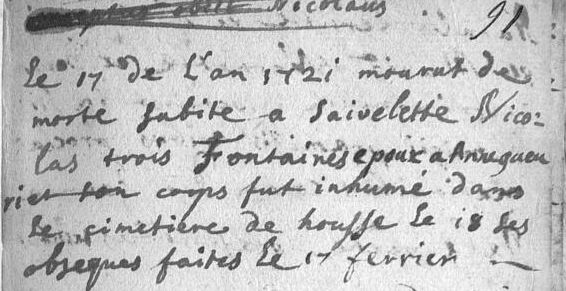 Nicolaus
91
Le 17 de L'an 1721 mourut de
morte subite a Saivelette Nico=
las trois Fontaines epoux a Anne gueu
riet son corps fut inhumé dans
Le cimetiere de housse Le 18 ses
obseques faites Le 17 fevrier